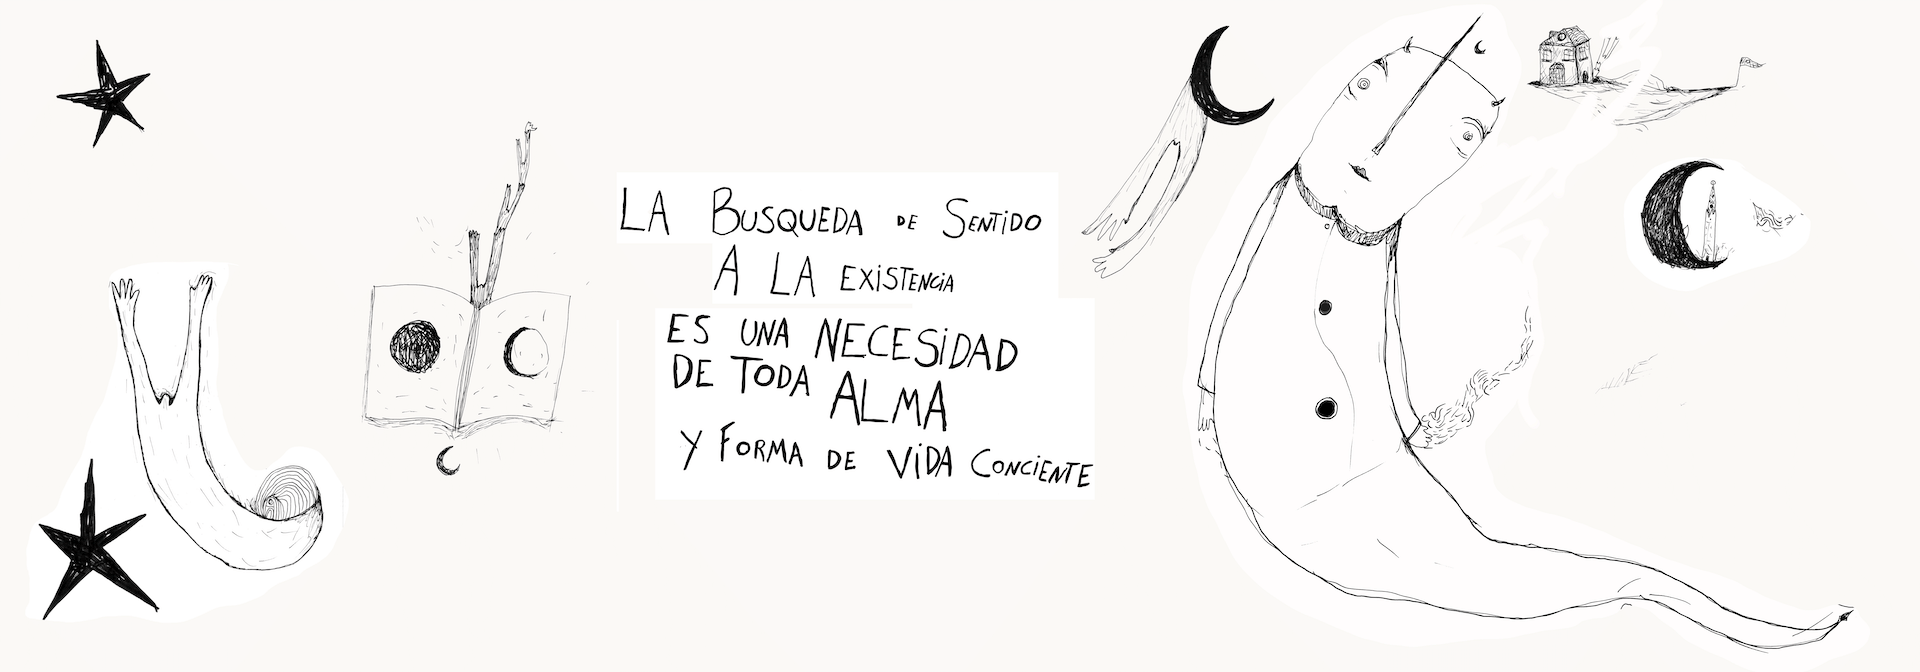 LA BUSQUEDA DE SENTIDO
A LA EXISTENCIA
ES UNA NECESIDAD
DE TODA ALMA
Y FORMA DE VIDA CONCIENTE